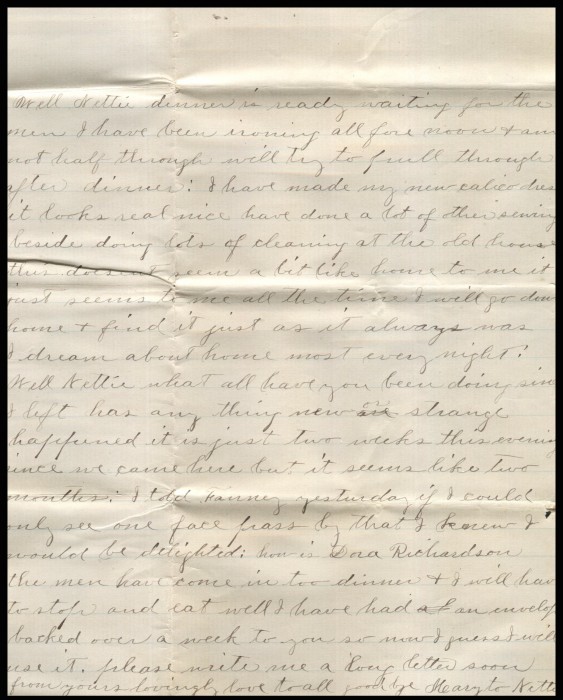 Well Nettie dinner is ready waiting for the
men I have been ironing all fore noon & am
not half through will try to pull through
after dinner: I have made my new calico dres
it looks real nice have done a lot of other sewing
beside doing lots of cleaning at the old house
this doesent seem a bit like home to me it
just seems to me all the time I will go down
home & find it just as it always was
I dream about home most every night:
Well Nettie what all have you been doing sin
I left has any thing new or strange
happened it is just two weeks this evening
since we came here but it seems like two
months: I told Fanney yesterday if I could
only see one face pass by that I knew I
would be delighted: how is Dora Richardson
the men have come in too dinner & I will hav
to stop and eat well I have had an envelop
backed over a week to you so now I guess I will
use it. please write me a long letter soon
from yours lovingly love to all good bye Mary to Nettie